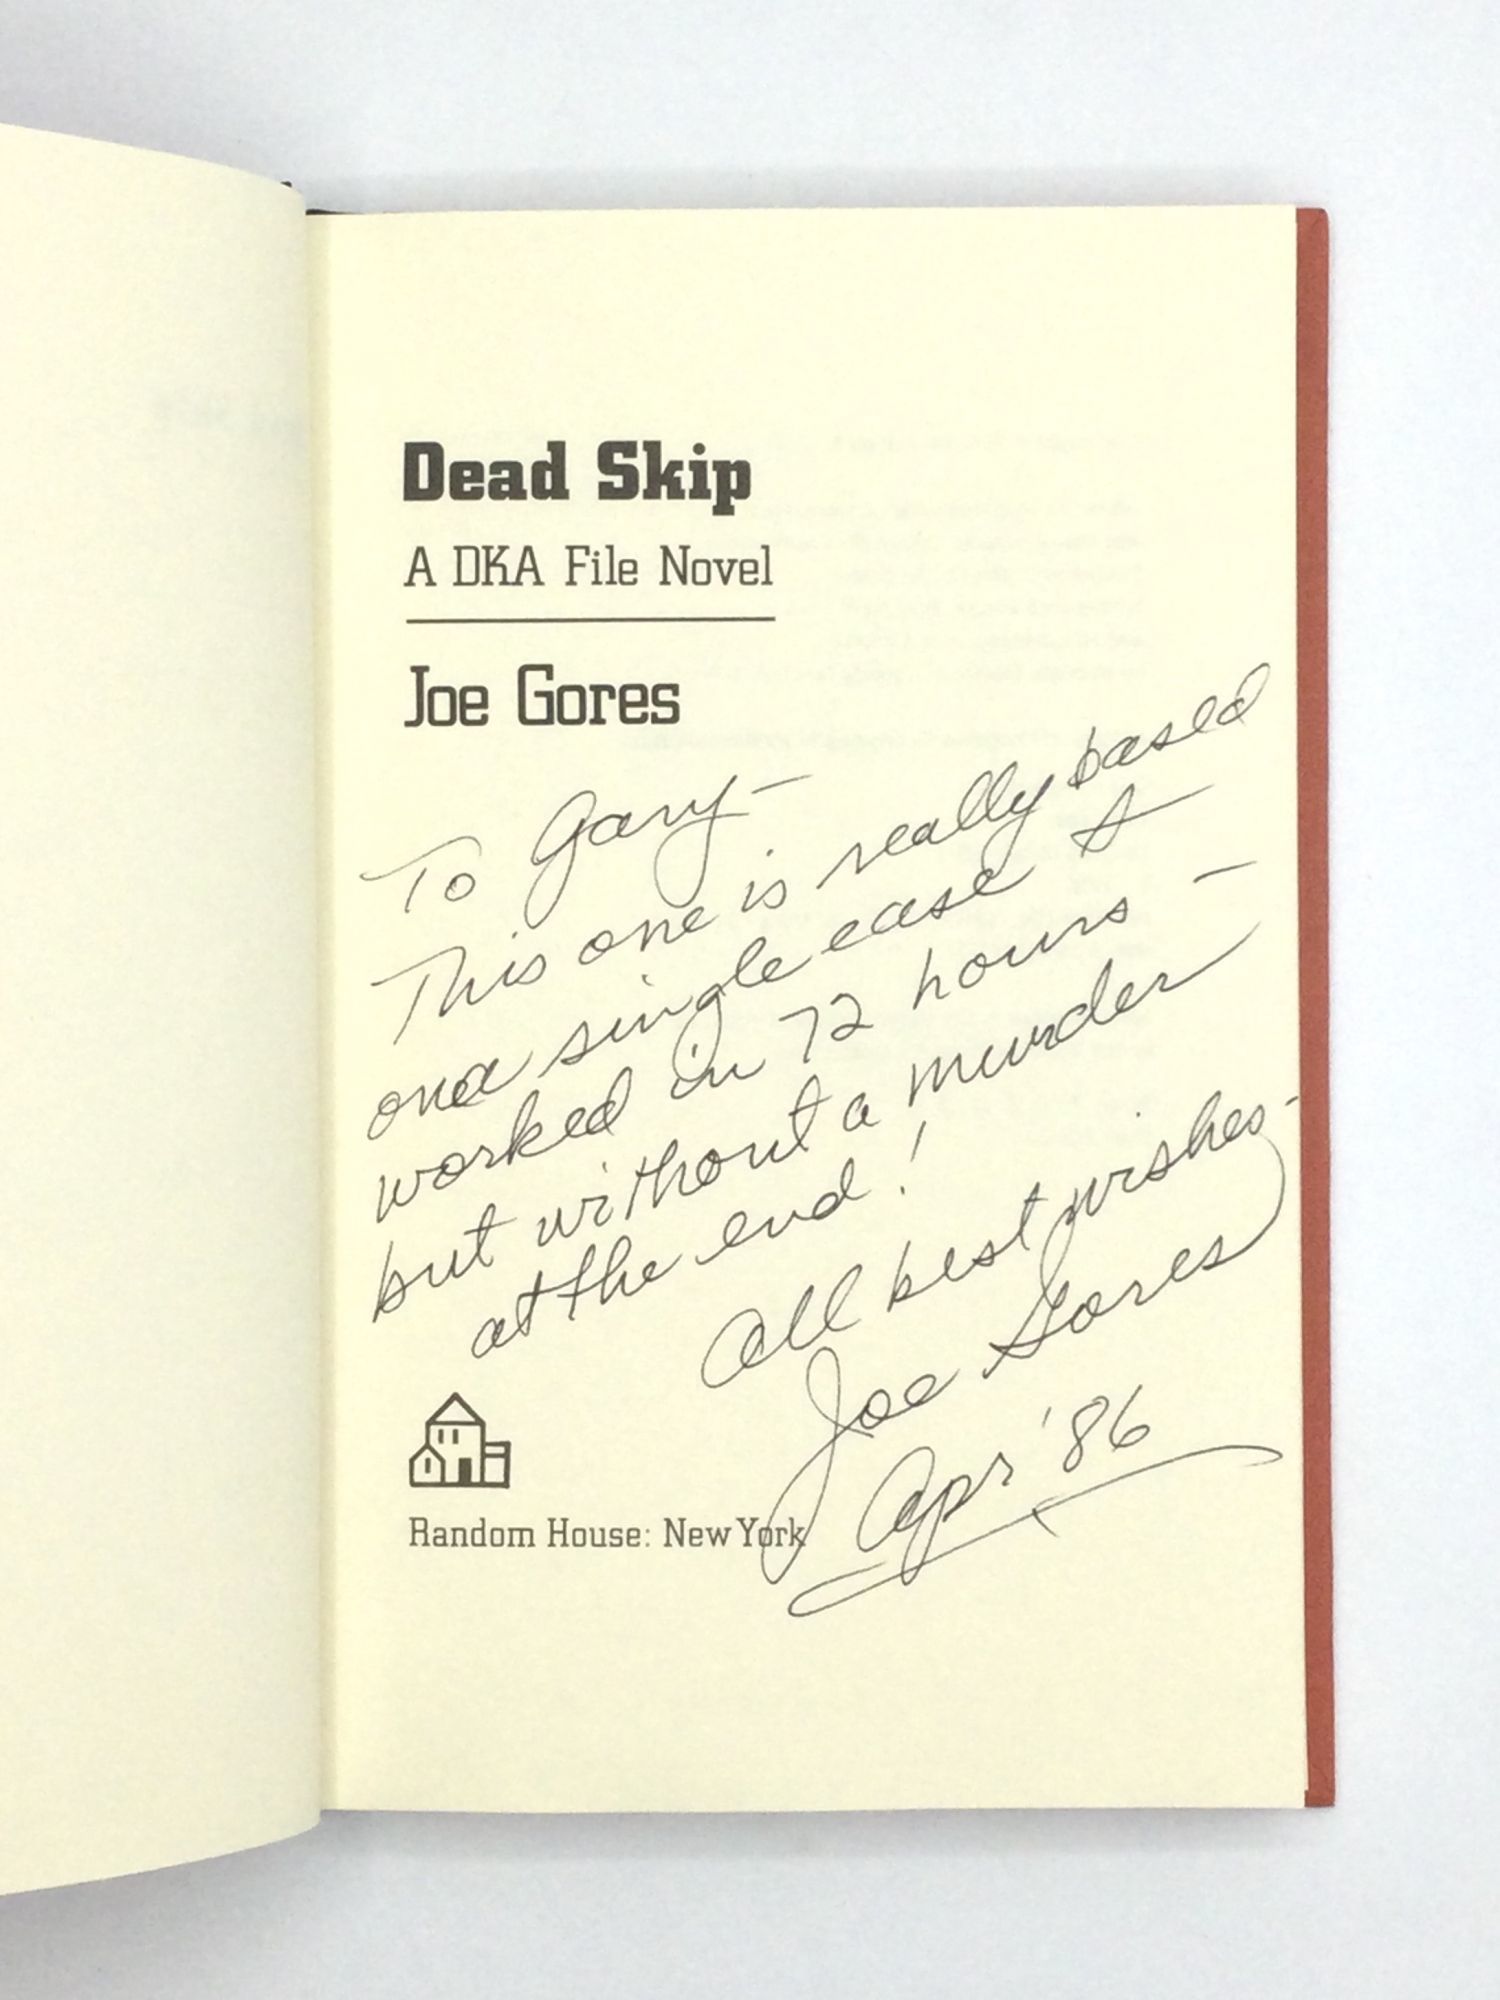 Dead Skip
A DKA File Novel
Joe Gores
To Gary—
This one is really based
on a single case I
worked in 72 hours —
but without a murder
at the end!
All best wishes-
Joe Gores
Apr '86
Random House: New York